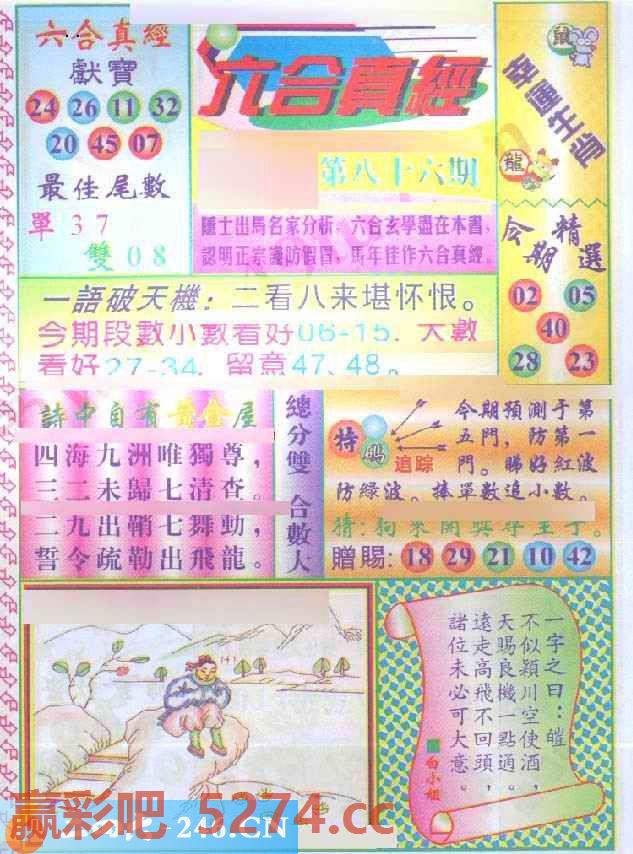 六合真經
獻寶
24 26 11 32
20 45 07
最佳尾數
單 3 7
雙 0 8
六合真經
第八十六期
隱士出馬名家分析，六合玄學盡在本書，
認明正宗謹防假冒，馬年佳作六合真經。
鼠
龍
幸運生肖
今期精選
02 05
40
28 23
一語破天機：二看八来堪怀恨。
今期段數小數看好06-15. 大數
看好27-34. 留意47、48。
詩中自有黄金屋
四海九洲唯獨尊，
三二未歸七清查。
二九出鞘七舞動，
誓令疏勒出飛龍。
總分雙 合數大
特碼
追踪
今期預測于第
五門，防第一
門。睇好紅波
防綠波。捧單數追小數。
贈賜: 18 29 21 10 42
一字之曰：皚
不似潁川空使酒，
天賜良機一點通。
遠走高飛不回頭，
諸位未必可大意。
白小姐
赢彩吧 5274.cc
246.CN